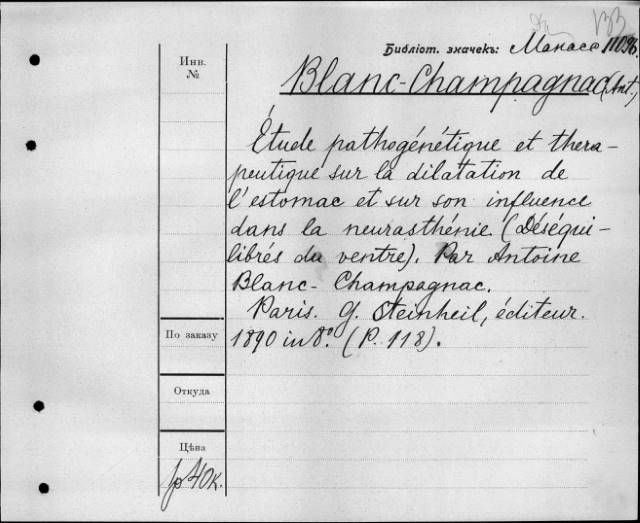 Библіот. значекъ: Манасс 11096.
Инв.
№
Blanc-Champagnac (Ant.)
Étude pathogénétique et thera-
peutique sur la dilatation de
l'estomac et sur son influence
dans la neurasthénie. (Déséqui-
librés du ventre). Par Antoine
Blanc-Champagnac.
Paris. G. Steinheil, éditeur.
По заказу
1890 in 8º. (P. 118).
Откуда
Цѣна
1р 40к.